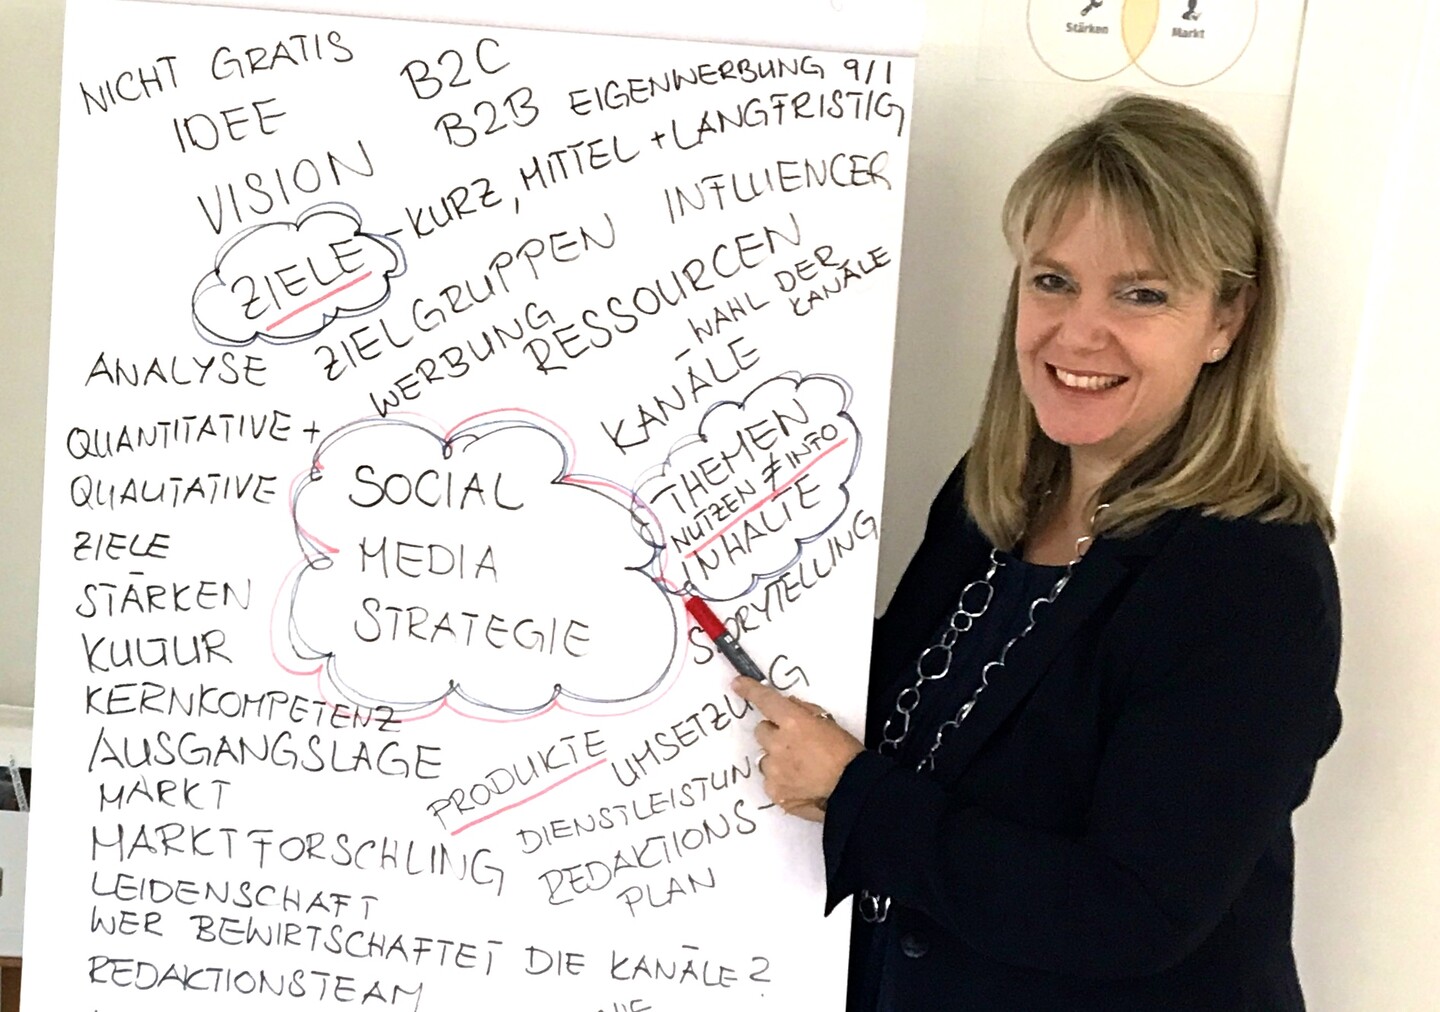 Stärken
Markt
NICHT GRATIS
IDEE
VISION
B2C
B2B
EIGENWERBUNG 9/1
ZIELE
-KURZ, MITTEL + LANGFRISTIG
ZIELGRUPPEN
INFLUENCER
WERBUNG
RESSOURCEN
- WAHL DER
KANÄLE
KANÄLE
THEMEN
NUTZEN ≠ INFO
INHALTE
STORYTELLING
ANALYSE
QUANTITATIVE +
QUALITATIVE
ZIELE
STÄRKEN
KULTUR
KERNKOMPETENZ
AUSGANGSLAGE
MARKT
MARKTFORSCHUNG
LEIDENSCHAFT
WER BEWIRTSCHAFTET DIE KANÄLE?
REDAKTIONSTEAM
SOCIAL
MEDIA
STRATEGIE
PRODUKTE
UMSETZUNG
DIENSTLEISTUNG
REDAKTIONS-
PLAN